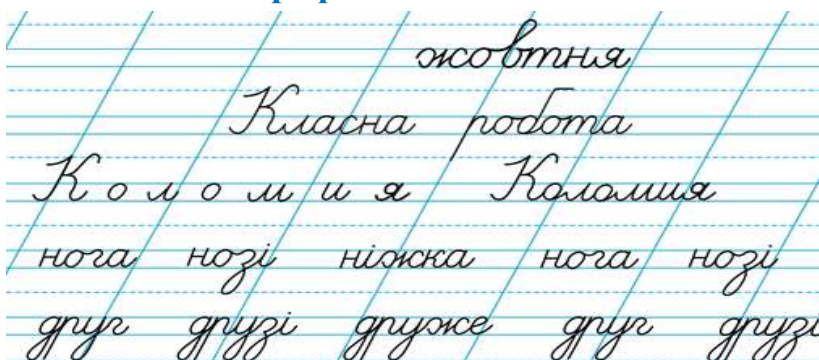 жовтня
Класна робота
К о л о м и я Коломия
нога нозі ніжка нога нозі
друг друзі друже друг друзі